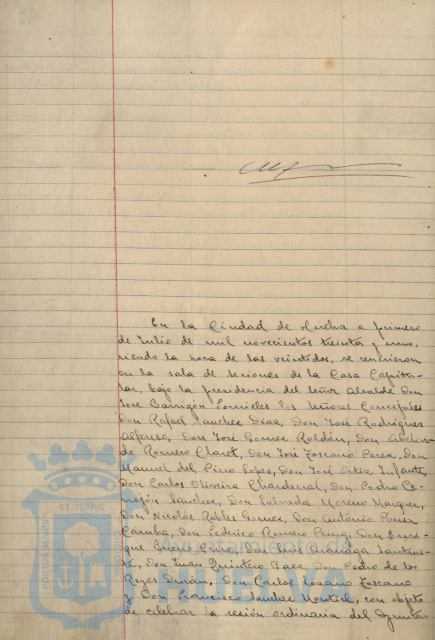 En la Ciudad de Huelva a primero
de Julio de mil novecientos treinta y uno,
siendo la hora de las veintidos, se reunieron
en la sala de sesiones de la Casa Capitu-
lar, bajo la presidencia del señor Alcalde Don
José Barrigón Fornieles los señores Concejales
Don Rafael Sanchez Díaz, Don José Rodríguez
Alfonso, Don José Gomez Roldán, Don
Romero Claret, Don José Toscano Perez, Don
Manuel del Pino Lopez, Don José Ortiz Infante,
Don Carlos Oliveira Chardenal, Don Pedro Ce-
rrejón Sanchez, Don Salvador Moreno Marquez,
Don Nicolás Robles Gomez, Don Antonio Pousa
Camba, Don Federico Romero Don
Cruz, Don Luis
Don Juan Quintero Baez, Don Pedro de los
Reyes Durán, Don Carlos Lozano Toscano
y Don Francisco Sanchez Montiel, con objeto
de celebrar la sesión ordinaria del Ayunta-
PORTUS MARIS ET TERRÆ
Ayuntamiento de